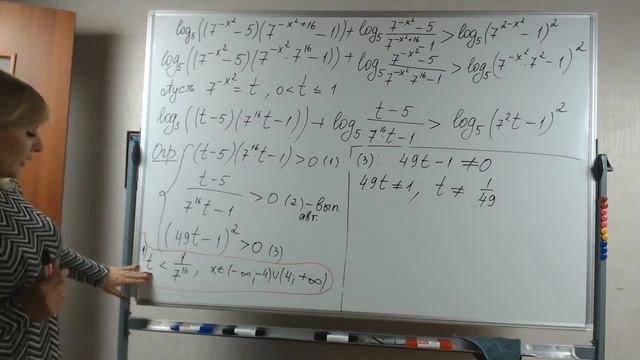 log₅((7^(-x²) - 5)(7^(-x²+16) - 1)) + log₅ (7^(-x²) - 5)/(7^(-x²+16) - 1) > log₅(7^(2-x²) - 1)²
log₅((7^(-x²) - 5)(7^(-x²) · 7¹⁶ - 1)) + log₅ (7^(-x²) - 5)/(7^(-x²) · 7¹⁶ - 1) > log₅(7^(-x²) · 7² - 1)²
Пусть 7^(-x²) = t ; 0 < t ≤ 1
log₅((t - 5)(7¹⁶t - 1)) + log₅ (t - 5)/(7¹⁶t - 1) > log₅(7²t - 1)²
Огр { (t - 5)(7¹⁶·t - 1) > 0 (1)
(t - 5)/(7¹⁶t - 1) > 0 (2) - вып. авт.
(49t - 1)² > 0 (3)
1) t < 1/7¹⁶ ; x ∈ (-∞; -4) ∪ (4; +∞)
(3): 49t - 1 ≠ 0
49t ≠ 1 ; t ≠ 1/49